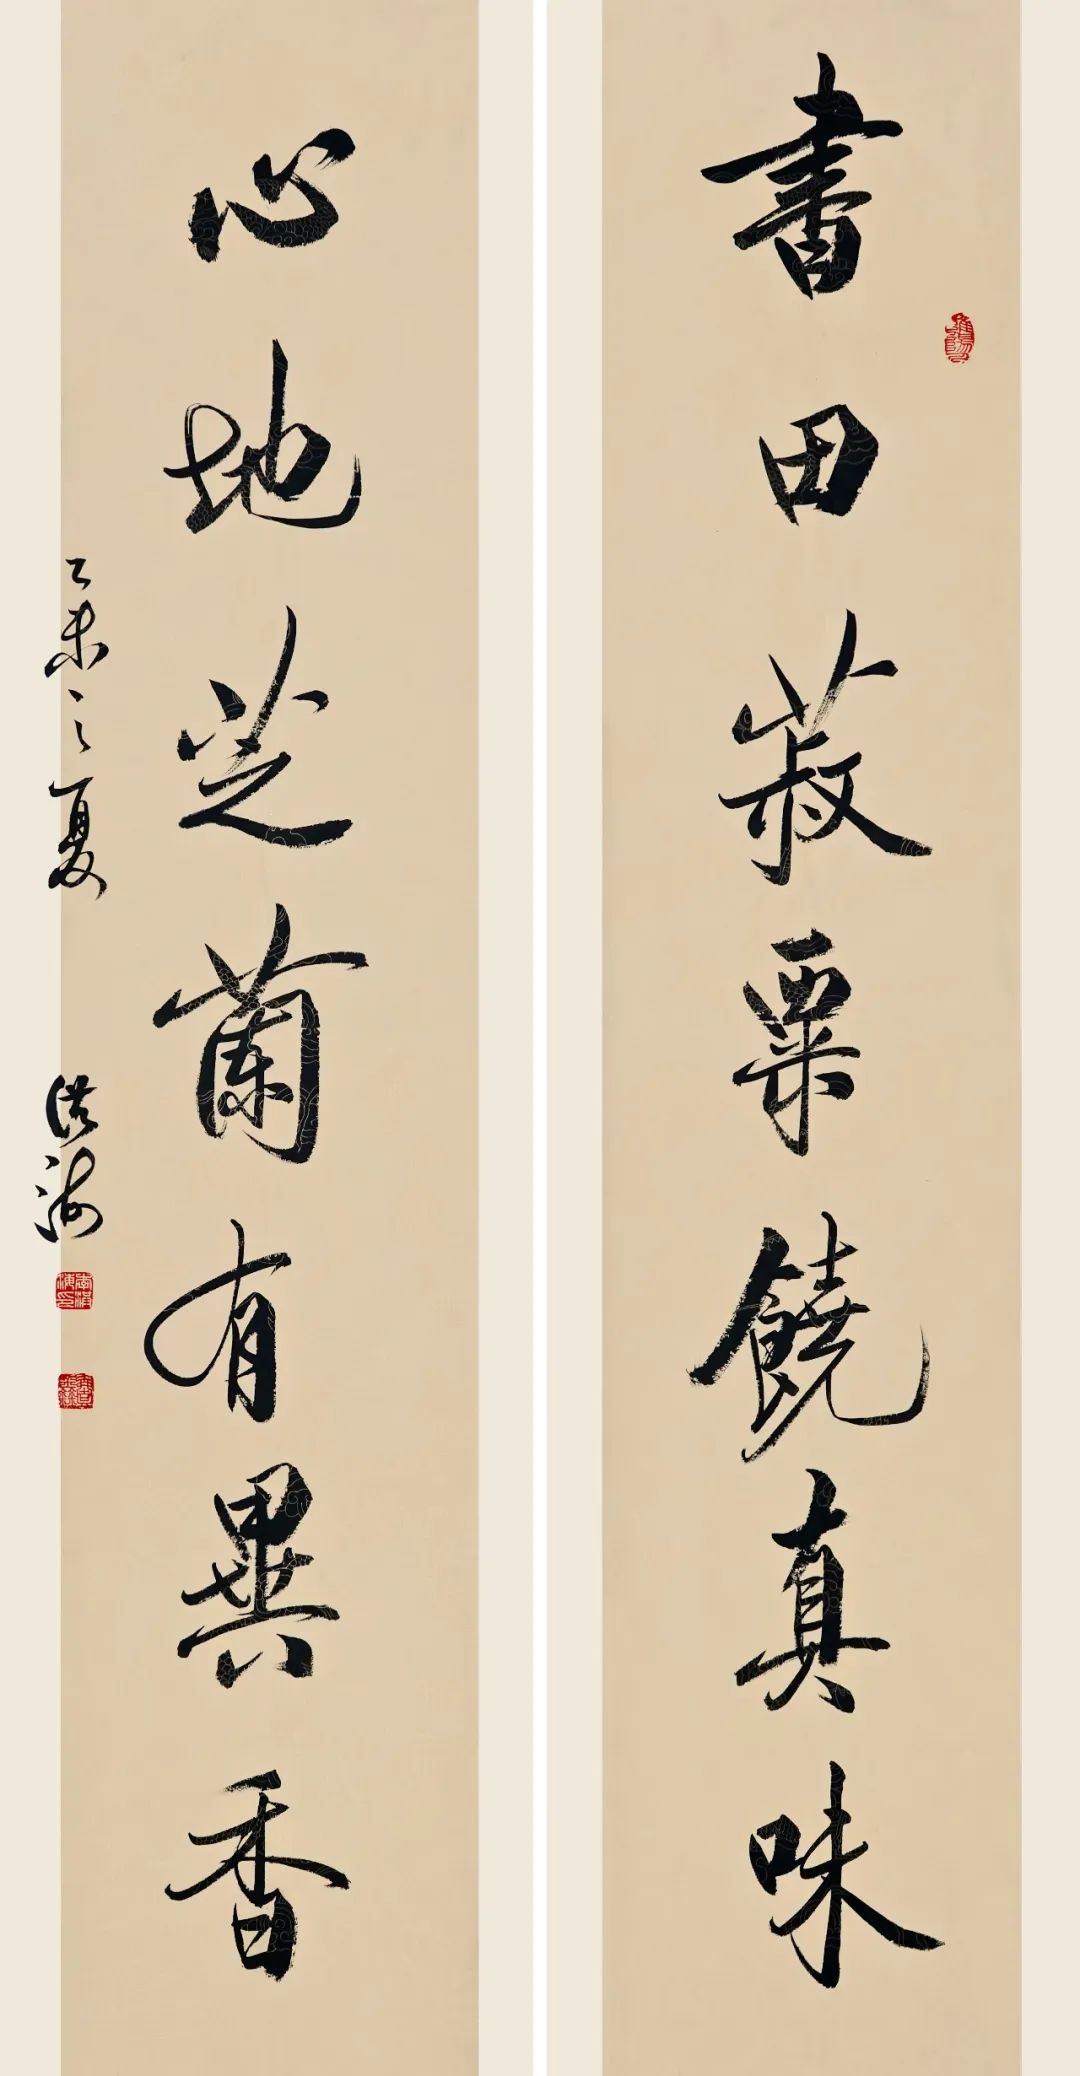 書田菽粟饒真味
心地芝蘭有異香
乙未之夏 洪海